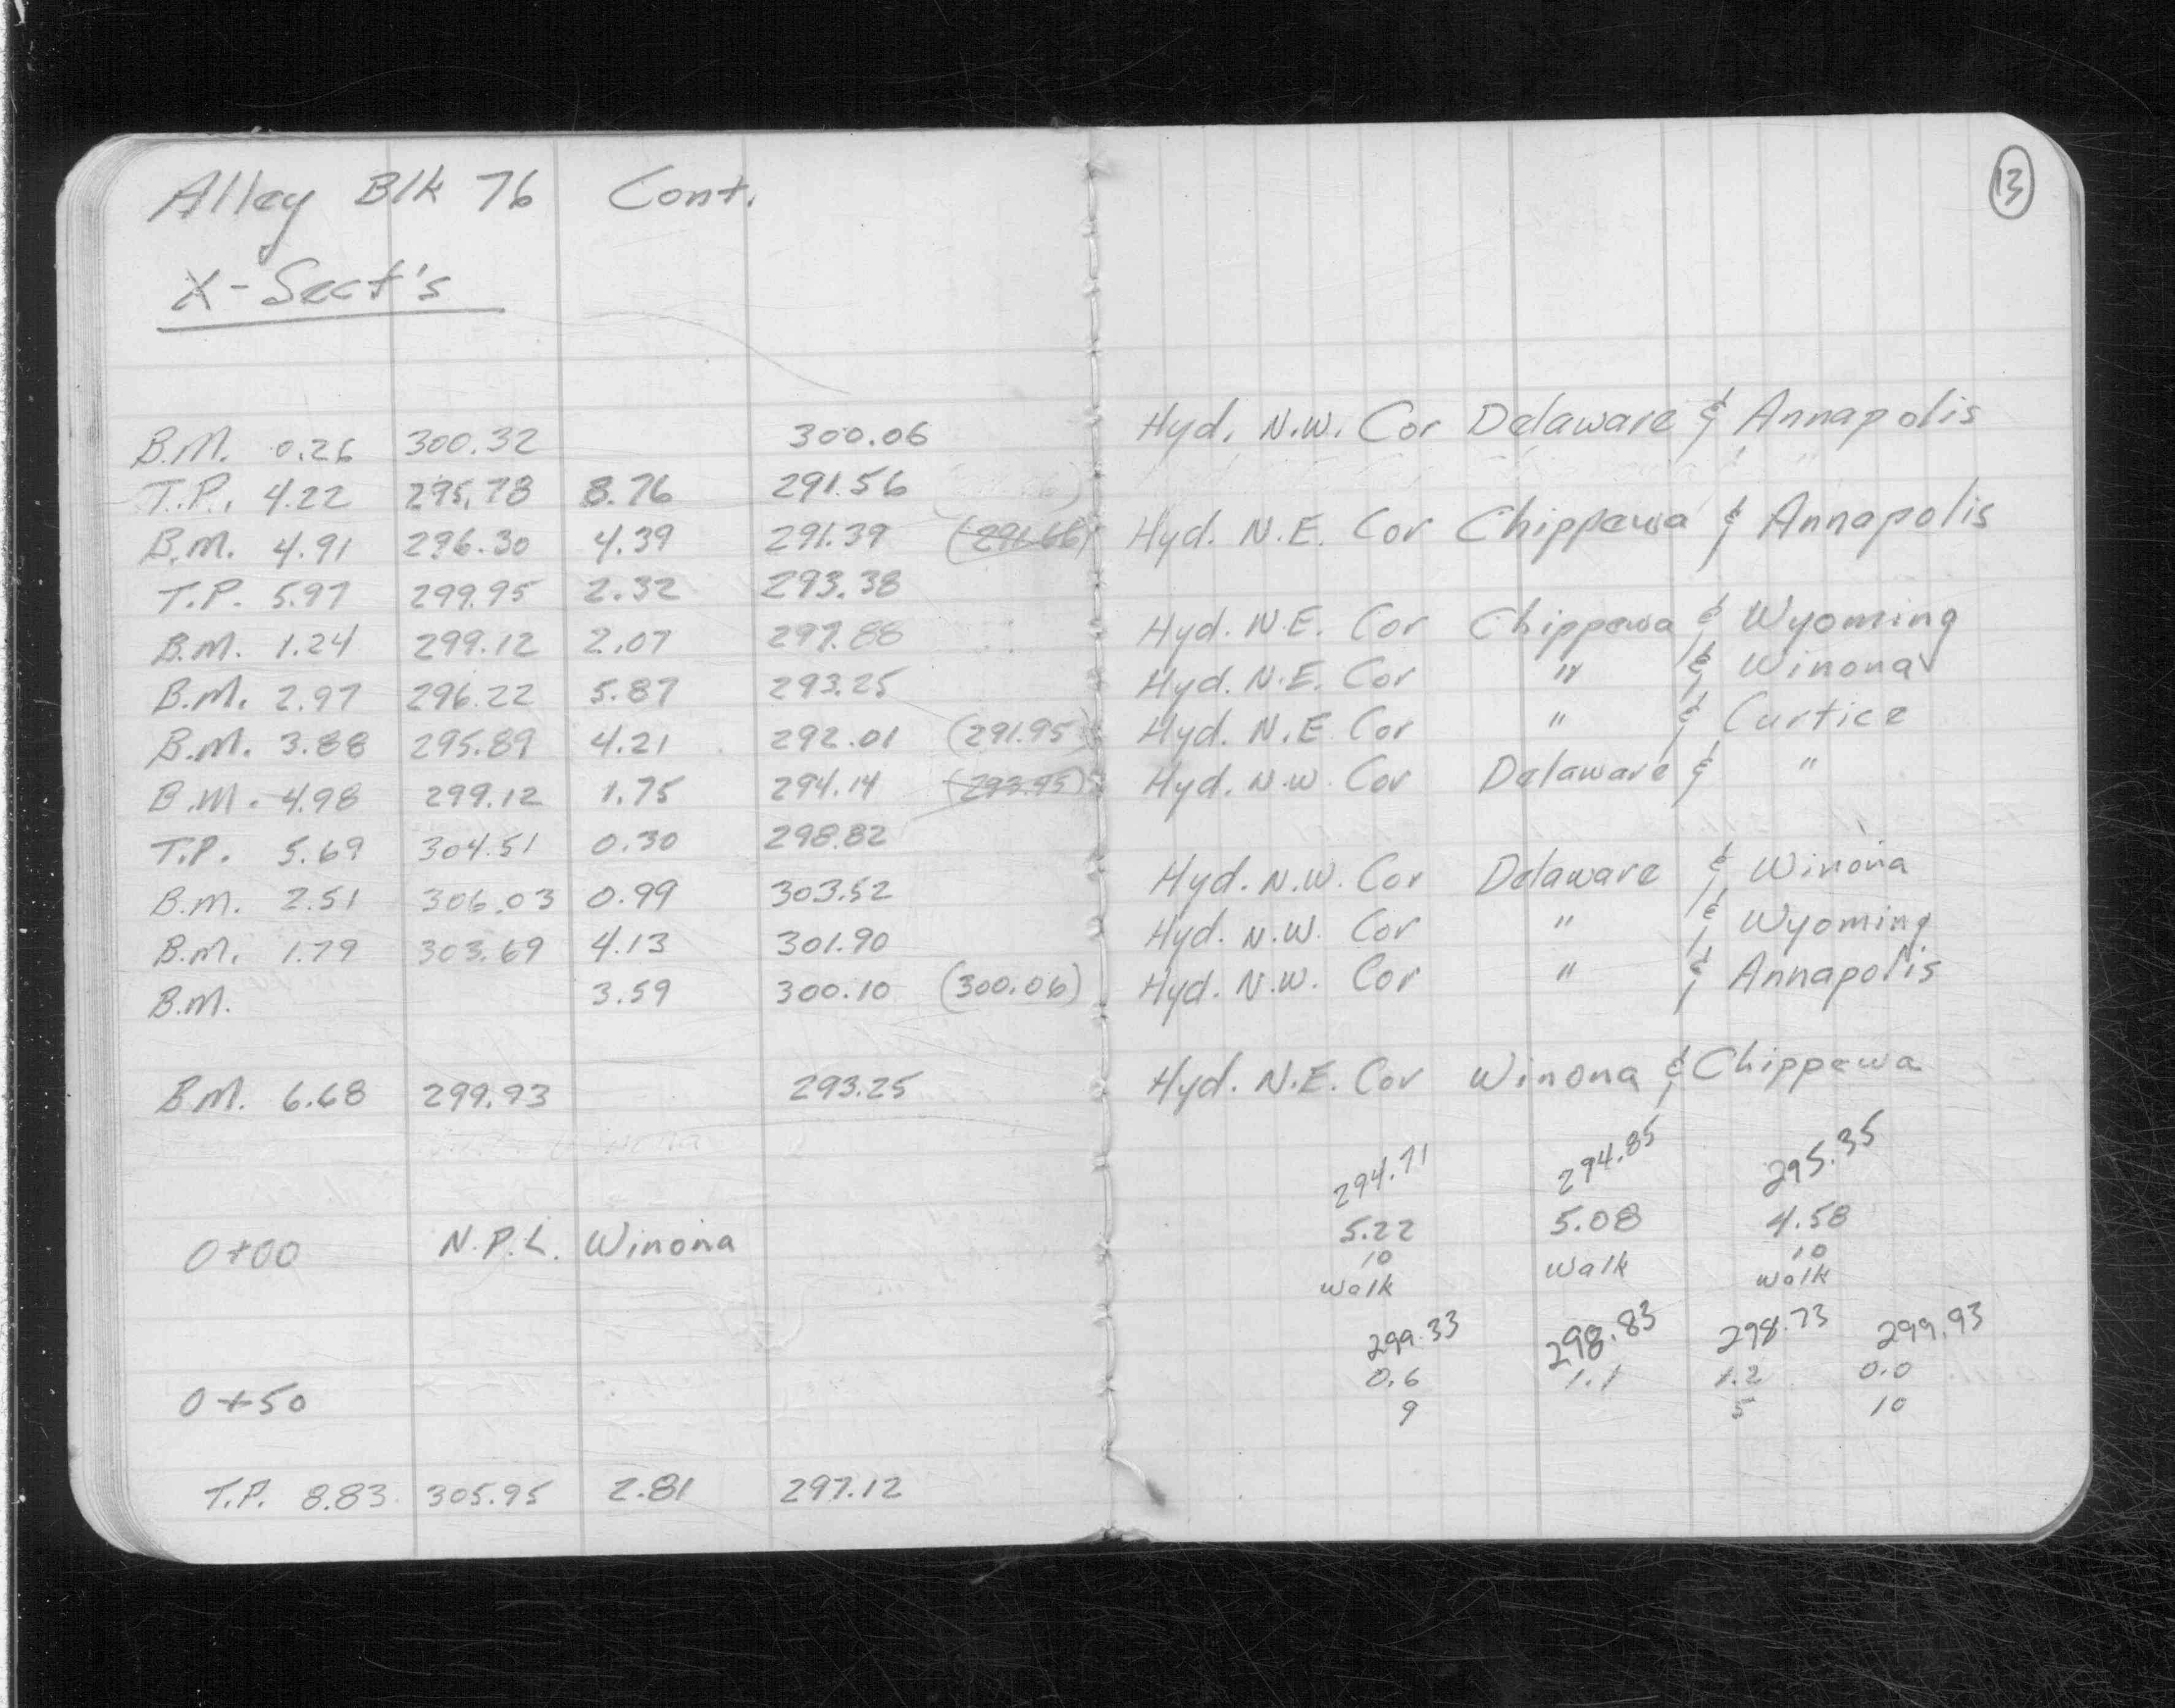 Alley Blk 76 Cont.
X-Sect's
B.M. 0.26 300.32 300.06
T.P. 4.22 295.78 8.76 291.56
B.M. 4.91 296.30 4.39 291.39
T.P. 5.97 299.95 2.32 293.98
B.M. 1.24 299.12 2.07 297.88
B.M. 2.97 296.22 5.87 293.25
B.M. 3.88 295.89 4.21 292.01 (291.95)
B.M. 4.98 299.12 1.75 294.14 (293.95)
T.P. 5.69 304.51 0.30 298.82
B.M. 2.51 306.03 0.99 303.52
B.M. 1.79 303.69 4.13 301.90
B.M. 3.59 300.10 (300.06)
B.M. 6.68 299.93 293.25
0+00 N.P.L. Winona
0+50
T.P. 8.83 305.95 2.81 297.12
13
Hyd. N.W. Cor Delaware & Annapolis
Hyd. N.E. Cor Chippewa & Annapolis
Hyd. N.E. Cor Chippewa & Wyoming
Hyd. N.E. Cor " & Winona
Hyd. N.E. Cor " & Curtice
Hyd. N.W. Cor Delaware & "
Hyd. N.W. Cor Delaware & Winona
Hyd. N.W. Cor " & Wyoming
Hyd. N.W. Cor " & Annapolis
Hyd. N.E. Cor Winona & Chippewa
294.71 294.85 295.35
5.22 5.08 4.58
10 walk 10
walk walk
299.33 298.83 298.73 299.93
0.6 1.1 1.2 0.0
9 5 10